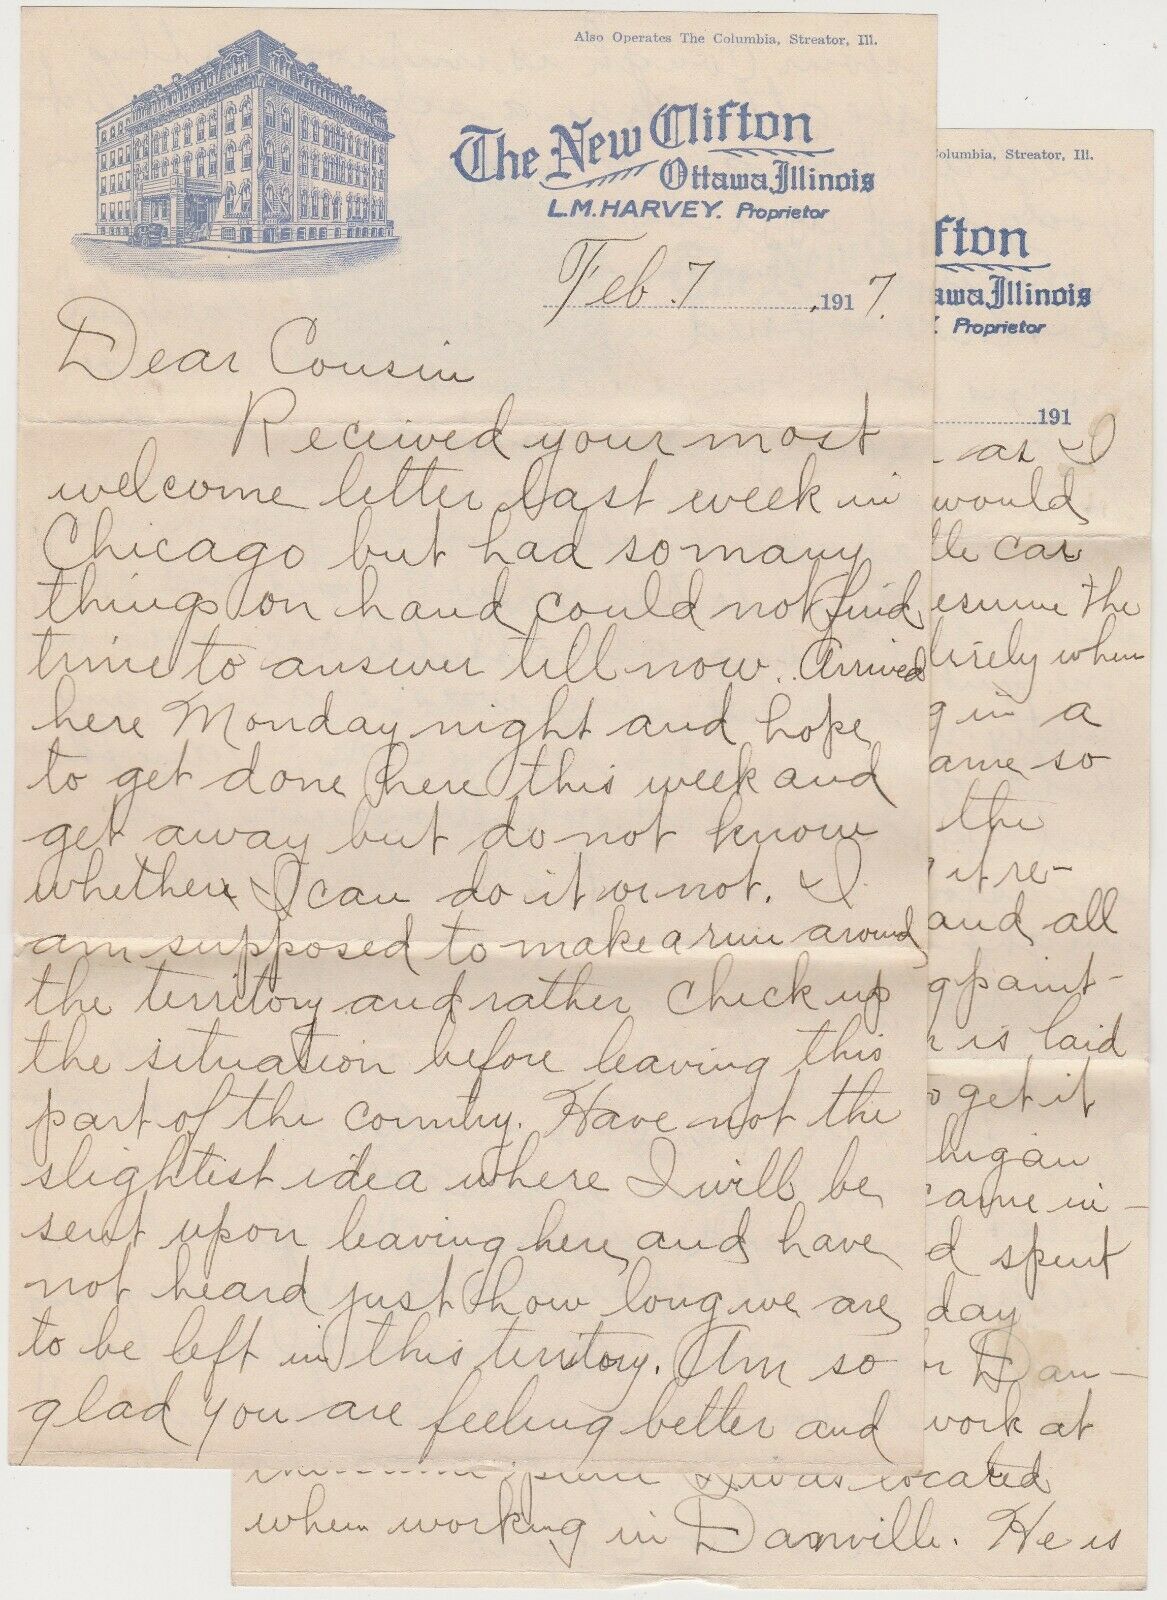 Also Operates The Columbia, Streator, Ill.
The New Clifton
Ottawa, Illinois
L.M. HARVEY. Proprietor
Feb. 7, 1917.
Dear Cousin
Received your most
welcome letter last week in
Chicago but had so many
things on hand could not find
time to answer till now. Arrived
here Monday night and hope
to get done here this week and
get away but do not know
whether I can do it or not. I
am supposed to make a run around
the territory and rather check up
the situation before leaving this
part of the country. Have not the
slightest idea where I will be
sent upon leaving here and have
not heard just how long we are
to be left in this territory. Am so
glad you are feeling better and
Columbia, Streator, Ill.
fton
awa, Illinois
Proprietor
191
as I
would
car
esume the
when
g in a
ame so
the
it re-
and all
g paint-
is laid
get it
higan
came in-
d spent
day
Dan-
work at
I was located
when working in Danville. He is